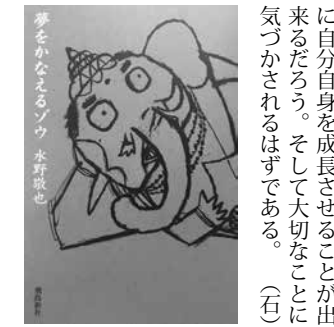 に自分自身を成長させることが出
来るだろう。そして大切なことに
気づかされるはずである。　（石）
夢をかなえるゾウ 水野敬也
飛鳥新社